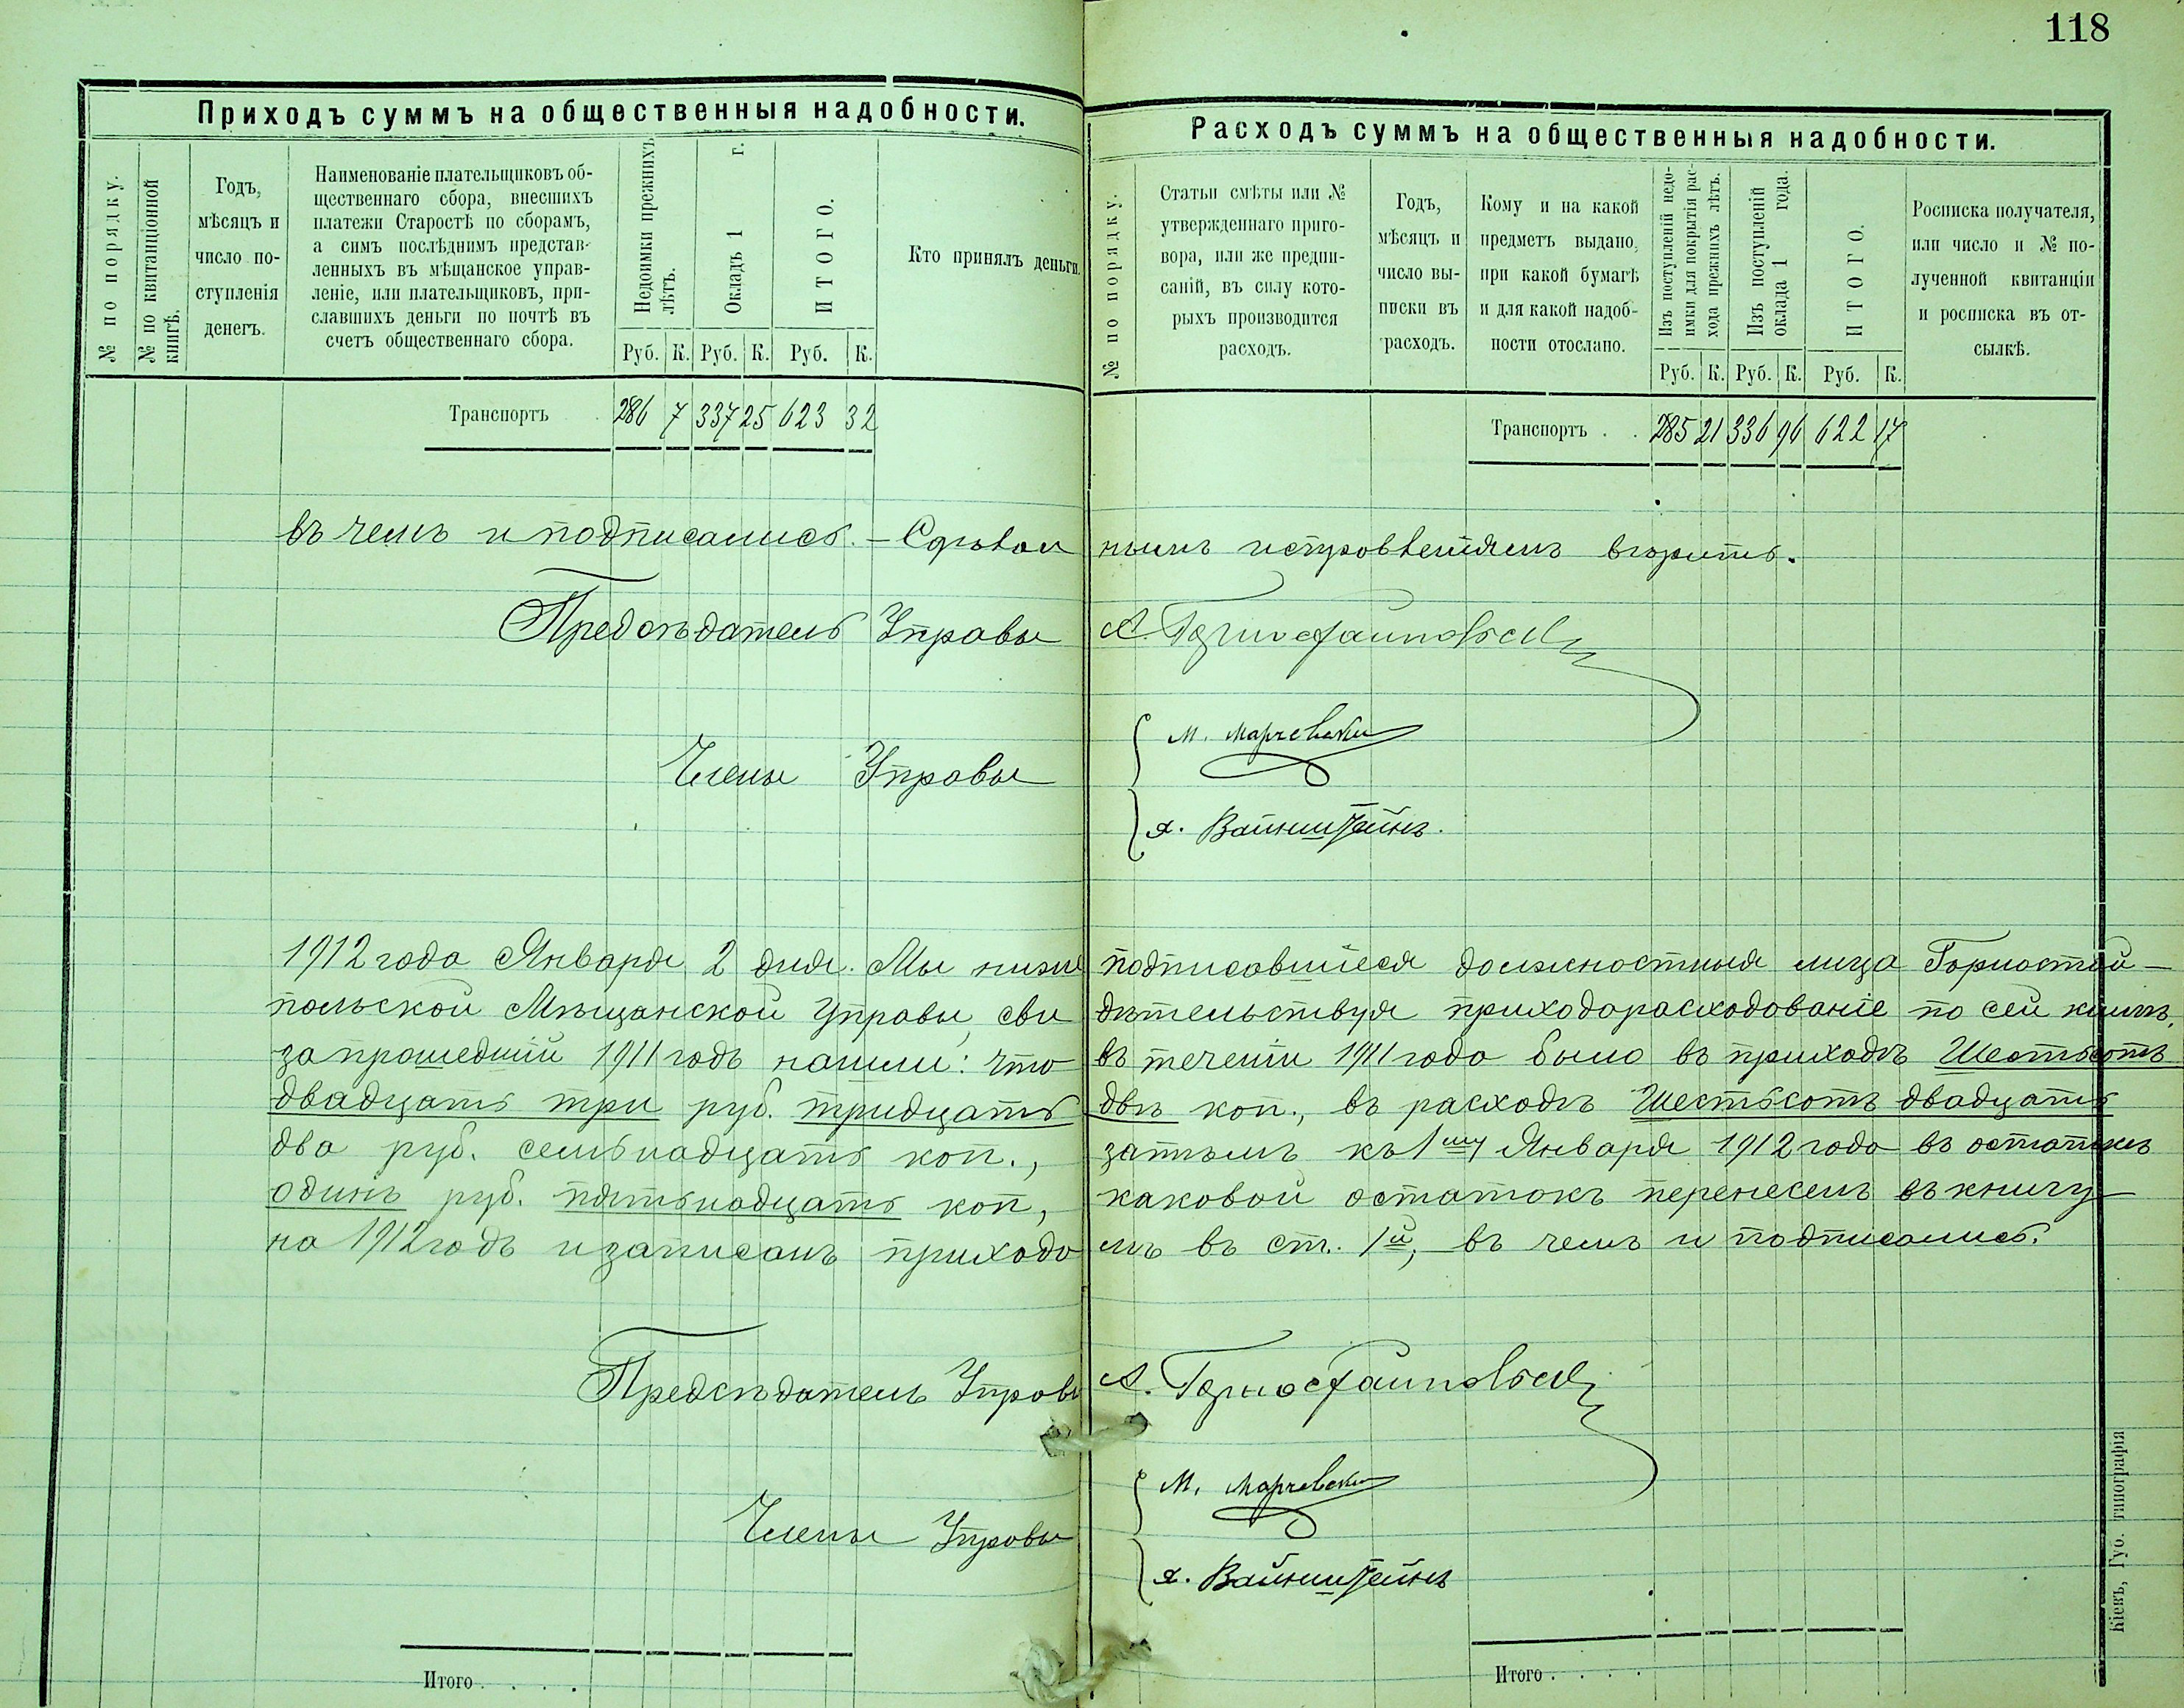 118
Приходъ суммъ на общественныя надобности.
№ по порядку.
№ по квитанціонной
книгѣ.
Годъ,
мѣсяцъ и
число по-
ступленія
денегъ.
Наименованіе плательщиковъ об-
щественнаго сбора, внесшихъ
платежи Старостѣ по сборамъ,
а симъ послѣднимъ представ-
ленныхъ въ мѣщанское управ-
леніе, или плательщиковъ, при-
славшихъ деньги по почтѣ въ
счетъ общественнаго сбора.
Недоимки прежнихъ
лѣтъ.
Окладъ 1 г.
ИТОГО.
Кто принялъ деньги.
Руб. К. Руб. К. Руб. К.
Транспортъ 286 7 337 25 623 32
Расходъ суммъ на общественныя надобности.
№ по порядку.
Статьи смѣты или №
утвержденнаго приго-
вора, или же предпи-
саній, въ силу кото-
рыхъ производится
расходъ.
Годъ,
мѣсяцъ и
число вы-
писки въ
расходъ.
Кому и на какой
предметъ выдано,
при какой бумагѣ
и для какой надоб-
ности отослано.
Изъ поступленій недо-
имки для покрытія рас-
хода прежнихъ лѣтъ.
Изъ поступленій
оклада 1 года.
ИТОГО.
Росписка получателя,
или число и № по-
лученной квитанціи
и росписка въ от-
сылкѣ.
Руб. К. Руб. К. Руб. К.
Транспортъ . . 285 21 336 96 622 17
въ чемъ и подписались. – Сдѣлан нымъ исправленіямъ вѣрить.
Предсѣдатель Управы А. Горностайпольск
Члены Управы
М. Марчевскі
Я. Вайнштейнъ.
1912 года Января 2 дня. Мы ниже подписавшіеся должностныя лица Горностай-
польской Мѣщанской Управы, сви дѣтельствуя приходорасходованіе по сей книгѣ,
за прошедшій 1911 годъ нашли: что въ теченіи 1911 года было въ приходѣ Шестьсотъ
двадцать три руб. тридцать двѣ коп., въ расходѣ Шестьсотъ двадцать
два руб. семьнадцать коп., затѣмъ къ 1му Января 1912 года въ остаткѣ
одинъ руб. пятьнадцать коп, каковой остатокъ перенесенъ въ книгу
на 1912 годъ и записанъ приходо мъ въ ст. 1й, въ чемъ и подписались.
Предсѣдатель Управы А. Горностайпольск
Члены Управы
М. Марчевскі
Я. Вайнштейнъ
Итого . . . .
Итого . . . .
Кіевъ, Губ. типографія